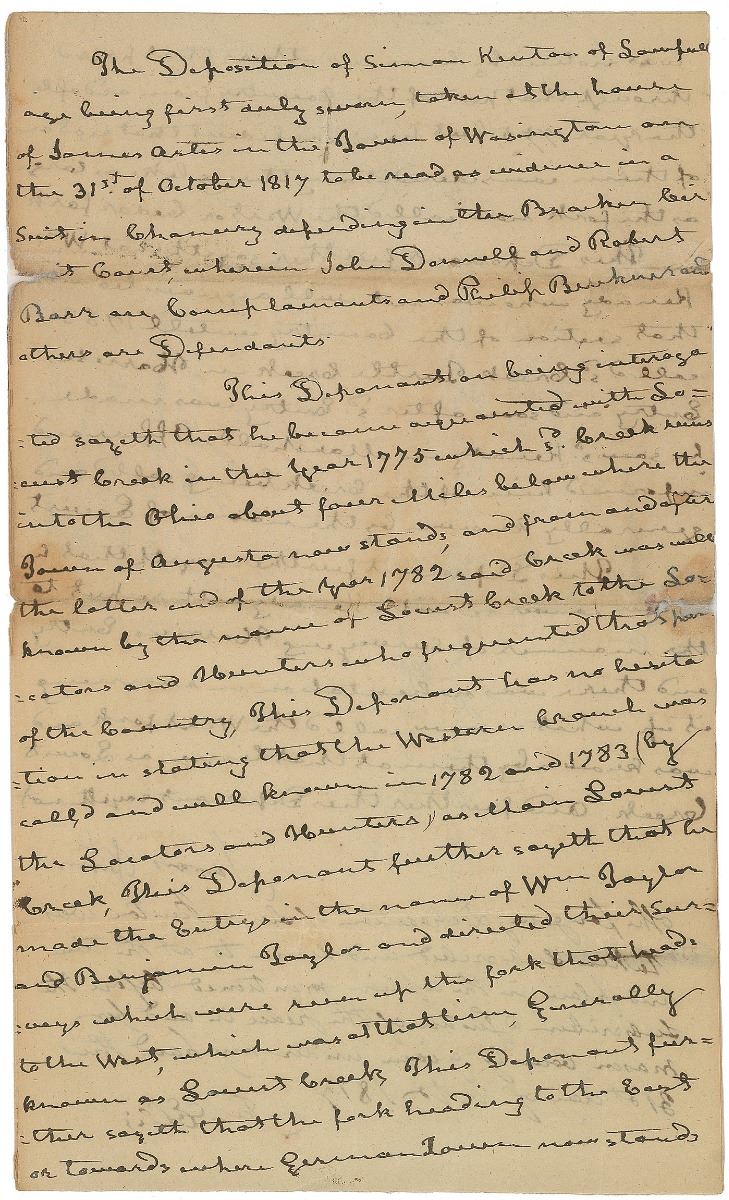 The Deposition of Simon Kenton of Lawfull
age being first duly sworn, taken at the house
of James Artes in the Town of Wasington on
the 31st of October 1817 to be read as evidence in a
Suit in Chancery depending in the Bracken Cir
it Court, wherein John Donnell and Robert
Barr are Complainants and Philip and
others are Defendants
This Deponant on being interoga
:ted sayeth that he became acquainted with Lo=
:cust Creek in the Year 1775 which sd. Creek runs
into the Ohio about four Miles below where the
Town of Augusta now stands, and from and after
the latter end of the Year 1782 said Creek was well
known by the name of Locust Creek to the Lo=
:cators and Hunters who frequented that part
of the Country, This Deponant has no hesita
:tion in stating that the Western branch was
call,d and well known in 1782 and 1783 (by
the Locators and Hunters) as Main Locust
Creek, This Deponant further sayeth that he
made the Entrys in the name of Wm Taylor
and Benjamin Taylor and directed their Sur=
:veys which were run up the fork that heads
to the West, which was at that time, Generally
known as Locust Creek This Deponant fur=
:ther sayeth that the fork heading to the East
or towards where GermanTown now stands